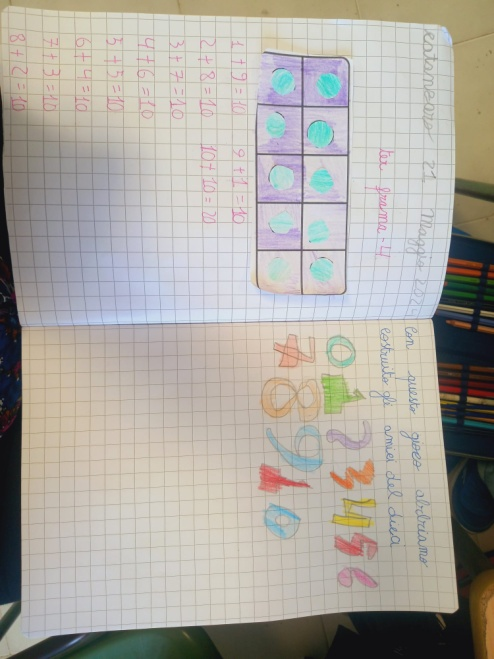 Catanzaro 21 Maggio 2024
tex frama-4
1+9=10
2+8=10
3+7=10
4+6=10
5+5=10
6+4=10
7+3=10
8+2=10
9+1=10
10+10=20
Con questo gioco abbiamo
costruito gli amici del
0 1 2 3 4 5 6
7 8 9 10